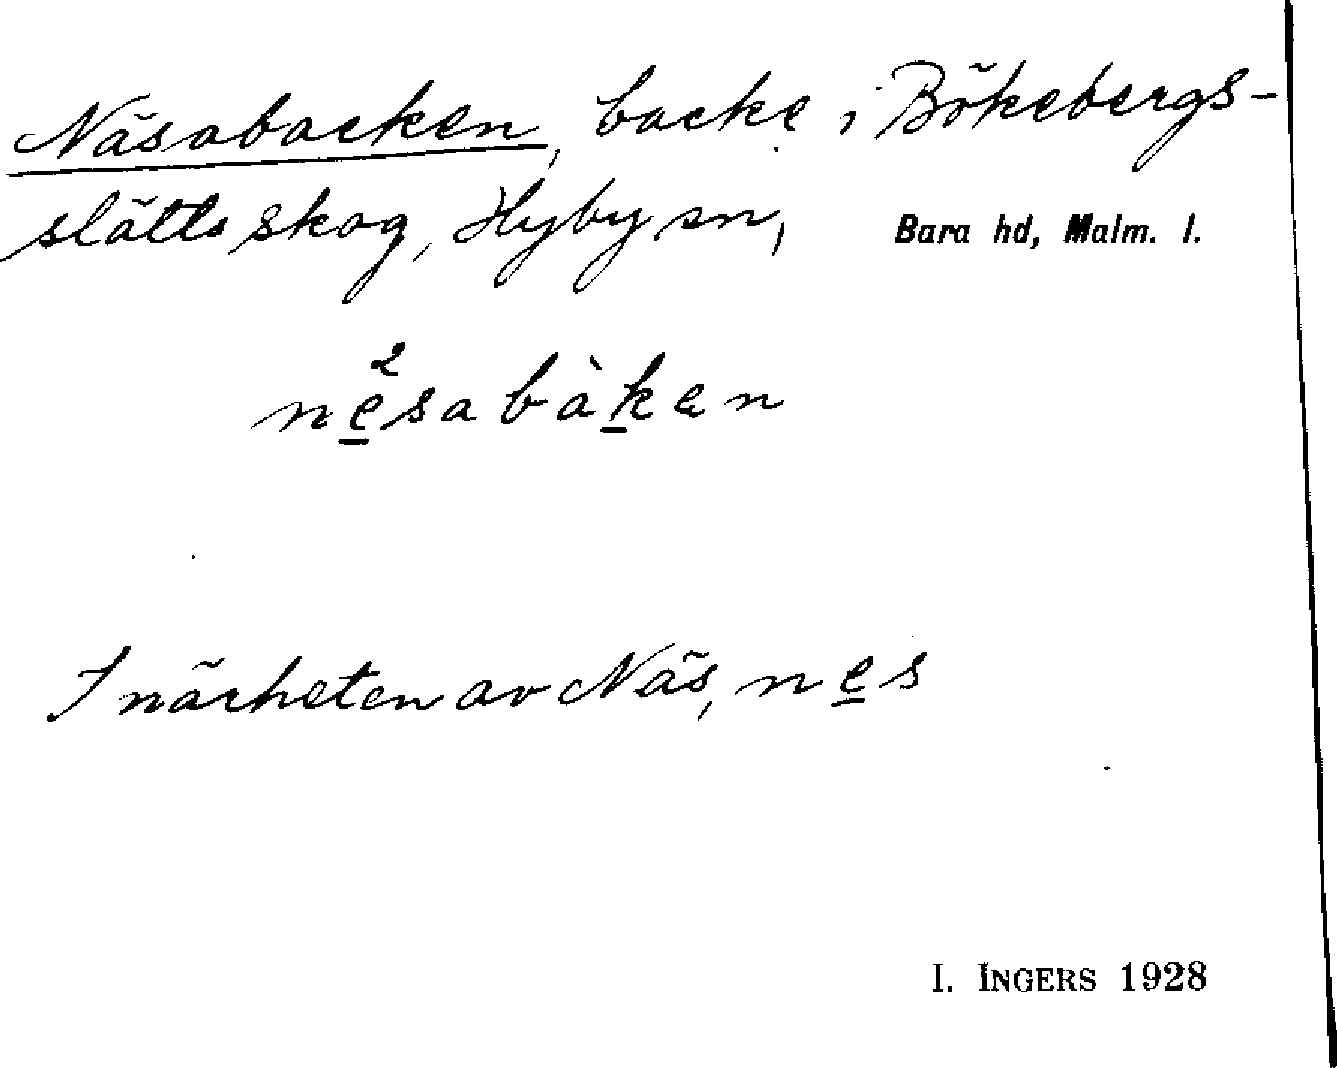 Näsabacken, backe i Bökebergs-
slätts skog, Hyby sn, Bara hd, Malm. l.
nẹ²sabàken
I närheten av Näs, nes
I. INGERS 1928